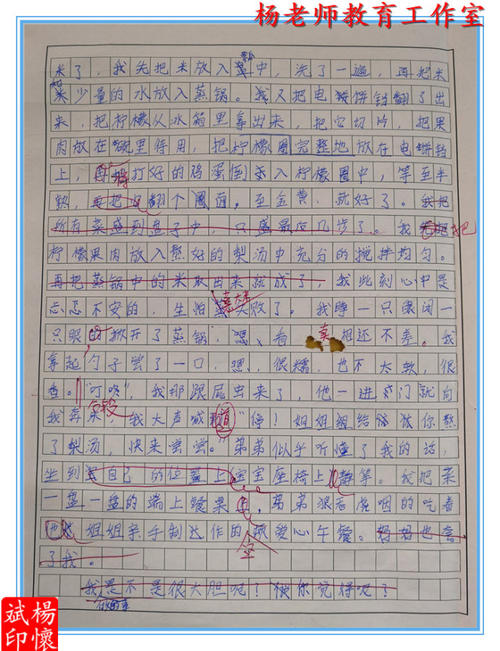 杨老师教育工作室
米了，我先把米放入盆中，洗了一遍，再把米
和少量的水放入蒸锅。我又把电饼铛翻了出
来，把柠檬从水箱里拿出来，把它切片，把果
肉放在碗里待用，把柠檬圈完整地放在电饼铛
上，再打好的鸡蛋倒入柠檬圈中，等至半
软，再把翻个面，至金黄，就好了。我把
所有菜盛到盘子中，只剩最后几步了。我把
柠檬果肉放入熬好的梨汤中充分的搅拌均匀。
再把蒸锅中的米取出来就成了，我此刻心中是
忐忑不安的，生怕失败了。我睁一只眼闭一
只眼的掀开了蒸锅，嗯，看卖相还不差。我
拿起勺子尝了一口，嗯，很糯，也不太软，很
香。"叮咚"，我那跟屁虫来了，他一进门就向
我奔来，我大声喊道"停！姐姐给你熬
了梨汤，快来尝尝。弟弟似乎听懂了我的话，
坐到自己的位置上宝宝座椅上静等。我把菜
一盘一盘的端上餐桌，弟弟狼吞虎咽的吃着
姐姐亲手制作的爱心午餐。妈妈也夸
了我。
我是不是很大胆呢！你觉得呢？
杨怀斌印